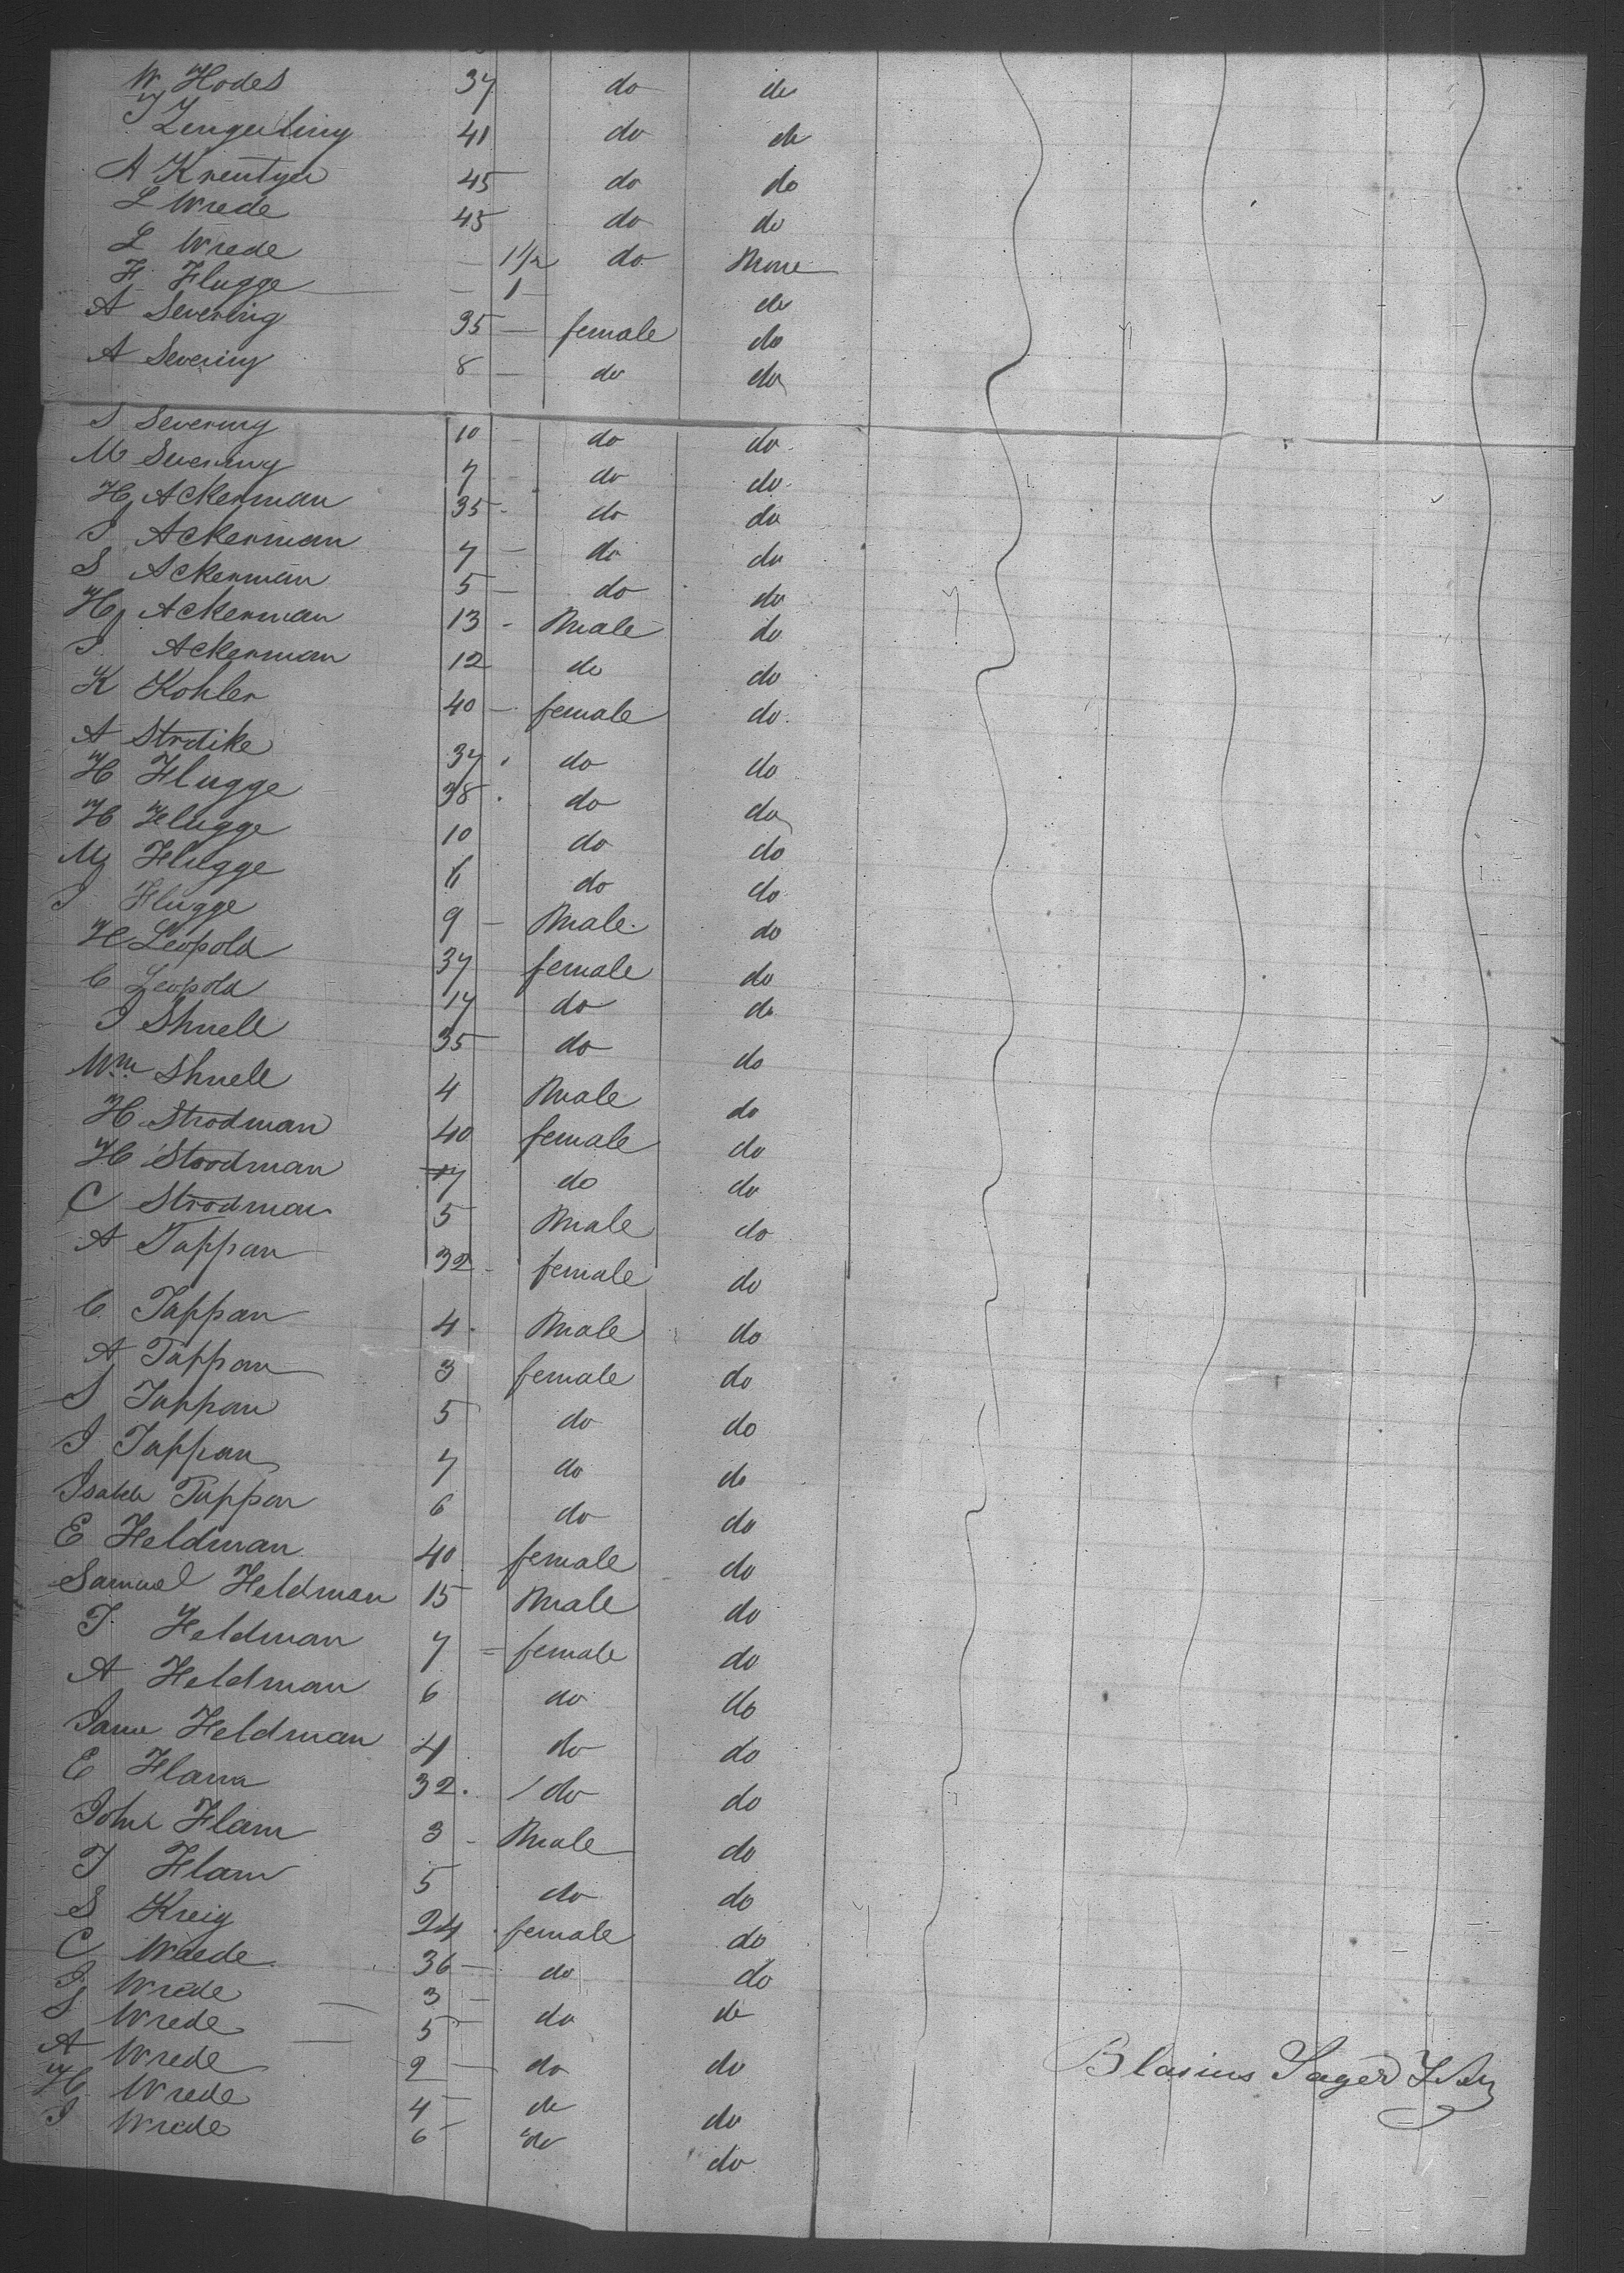 W Hodes 37 do do
J Lengerling 41 do do
A Kreutyer 45 do do
L Wrede 45 do do
L Wrede — 1½ do None
F. Flugge — 1 — do
A Severing 35 — female do
A Severing 8 — do do
S Severing 10 — do do
M Severing 7 do do
H Ackerman 35 - do do
J Ackerman 7 — do do
S Ackerman 5 — do do
H Ackerman 13 - Male do
J. Ackerman 12 do do
K Kohler 40 — female do
A Strdike 37 do do
H Flugge 38 . do do
H Flugge 10 do do
M Flugge 6 do do
J Flugge 9 — Male do
H Leopold 37 female do
C Leopold 17 do do
J Shnell 35 do do
Wm Shnell 4 Male do
H Strodman 40 female do
H Strodman 7 do do
C Strodman 5 Male do
A Tappan 32 - female do
C Tappan 4 . Male do
A Tappan 3 female do
S Tappan 5 do do
J Tappan 7 do do
Isabela Tappan 6 do do
E Heldman 40 female do
Samuel Heldman 15 Male do
T. Heldman 7 = female do
A Heldman 6 do do
Jane Heldman 4 do do
E Flam 32 . do do
John Flam 3 - Male do
J Flam 5 do do
S Kreig 24 female do
C Wrede 36 — do do
J Wrede 3 — do do
S Wrede 5 —
A Wrede 2 — do do
H. Wrede 4 — do do
J Wrede 6 — do do
Blasius Sager